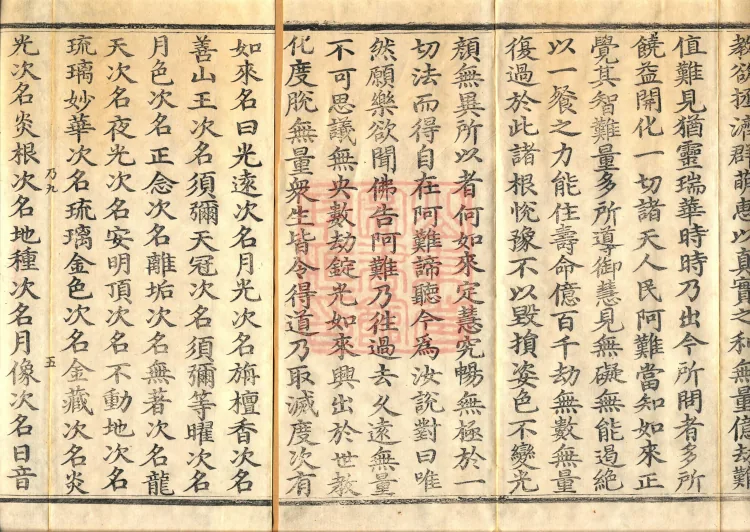 教欲拯濟群萌惠以真實之利無量億劫難
值難見猶靈瑞華時時乃出今所問者多所
饒益開化一切諸天人民阿難當知如來正
覺其智難量多所導御慧見無礙無能遏絕
以一飡之力能住壽命億百千劫無數無量
復過於此諸根悅豫不以毀損姿色不變光
顏無異所以者何如來定慧究暢無極於一
切法而得自在阿難諦聽今為汝說對曰唯
然願樂欲聞佛告阿難乃往過去久遠無量
不可思議無央數劫錠光如來興出於世教
化度脫無量衆生皆令得道乃取滅度次有
如來名曰光遠次名月光次名旃檀香次名
善山王次名須彌天冠次名須彌等曜次名
月色次名正念次名離垢次名無著次名龍
天次名夜光次名安明頂次名不動地次名
琉璃妙華次名琉璃金色次名金藏次名炎
乃九 五
光次名炎根次名地種次名月像次名日音